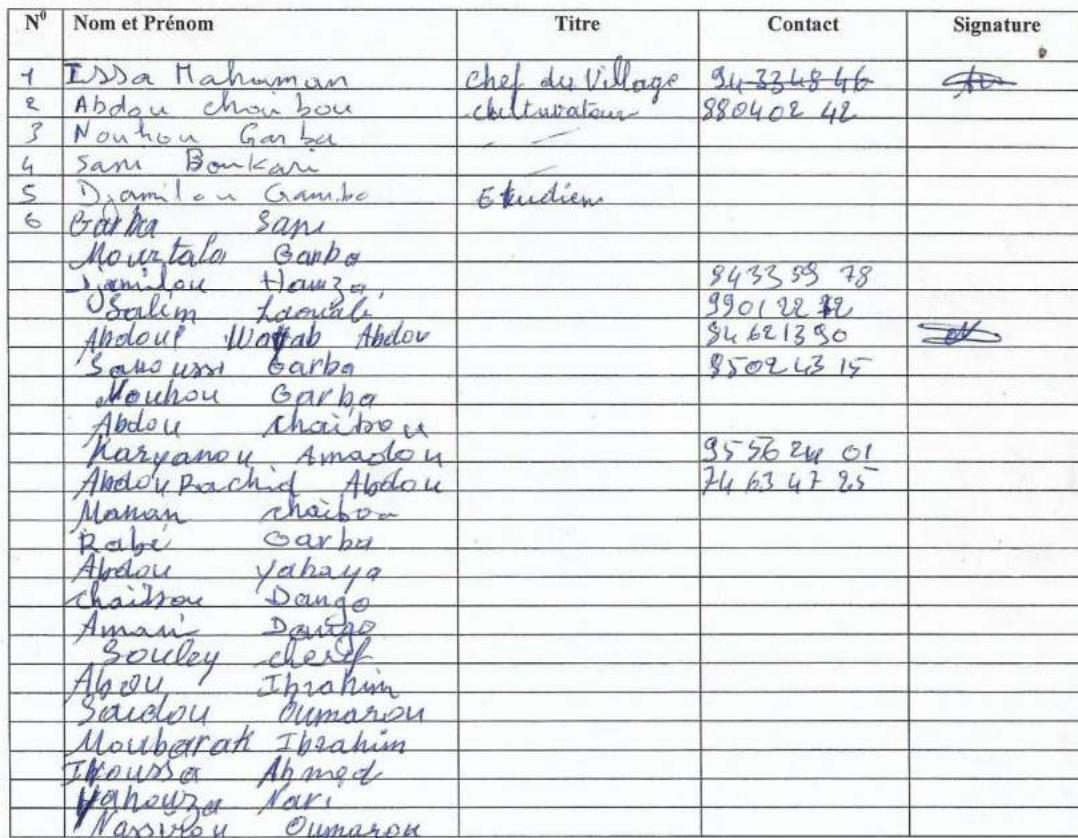 N⁰ Nom et Prénom Titre Contact Signature
1 Issa Mahaman Chef du Village 94 33 48 46
2 Abdou chaibou cultivateur 880402 42
3 Nouhou Garba
4 Sani Boukari
5 Djamilou Gambo Etudien
6 Garba Sani
Mourtala Garba
Djamilou Hamza 943359 78
Salim Laouali
Abdoul Wahab Abdou 94 621390
Sanoussi Garba 950243 15
Nouhou Garba
Abdou chaibou
Karyanou Amadou 955624 01
Abdou Rachid Abdou 74 63 47 25
Maman chaibou
Rabé Garba
Abdou Yahaya
chaibou Dango
Amani Dango
Souley cherif
Abdou Ibrahim
Saidou Oumarou
Moubarak Ibrahim
Ikoussa Ahmed
Yahouza Nari
Nassirou Oumarou